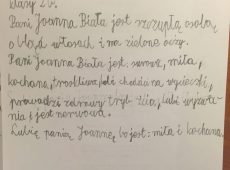 klasy 2b.
Pani Joanna Biała jest szczupłą osobą,
o blond włosach i ma zielone oczy.
Pani Joanna Biała jest: miła,
kochana, troskliwa, lubi chodzić na wycieczki,
prowadzi zdrowy tryb życia, lubi
nia i jest nerwowa.
Lubię panią Joannę, bo jest: miła i kochana.